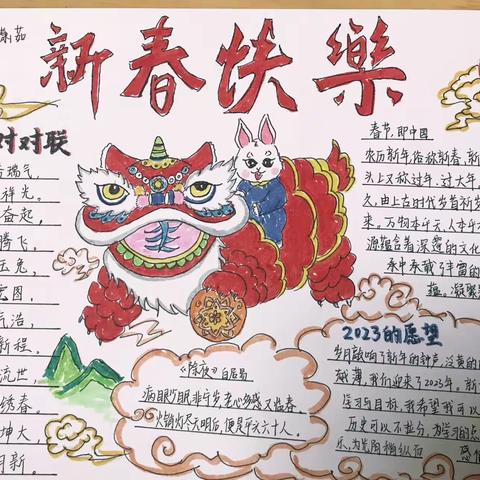 茹
新春快樂
对对联
瑞气,
祥光。
奋起,
腾飞,
玉兔,
宏图,
气浩,
新程。
流世
锈春。
坤大,
月新。
《除夜》白居易
病眼少眠非守岁,老心多感又临春。
火销灯尽天明后,便是平头六十人。
春节,即中国
农历新年,俗称新春、新
头上又称过年、过大年,
久,由上古时代岁首祈岁
来。万物本乎天、人本乎
源蕴含着深邃的文化
承中承载了丰富的
蕴。凝聚
2023的愿望
岁月敲响了新年的钟声,
我们迎来了2023年。新
学习与目标,我希望我可以
历史可以不拉分,为学习的
乐,为